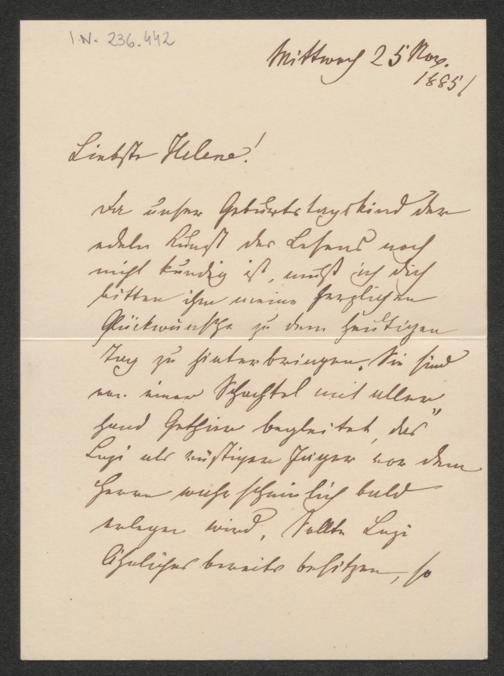 I.N. 236.442
Mittwoch 25 Nov.
1885/
Liebste Helene!
Da unser Geburtstagskind der
edeln Kunst des Lesens noch
nicht kundig ist, muß ich dich
bitten ihm meine herzlichen
Glückwünsche zu dem heutigen
Tag zu hinterbringen. Sie sind
von einer Schachtel mit aller
hand Gethier begleitet, das
Luzi als rüstiger Jäger vor dem
Herrn wahrscheinlich bald
erlegen wird. Sollte Luzi
Ähnliches bereits besitzen, so